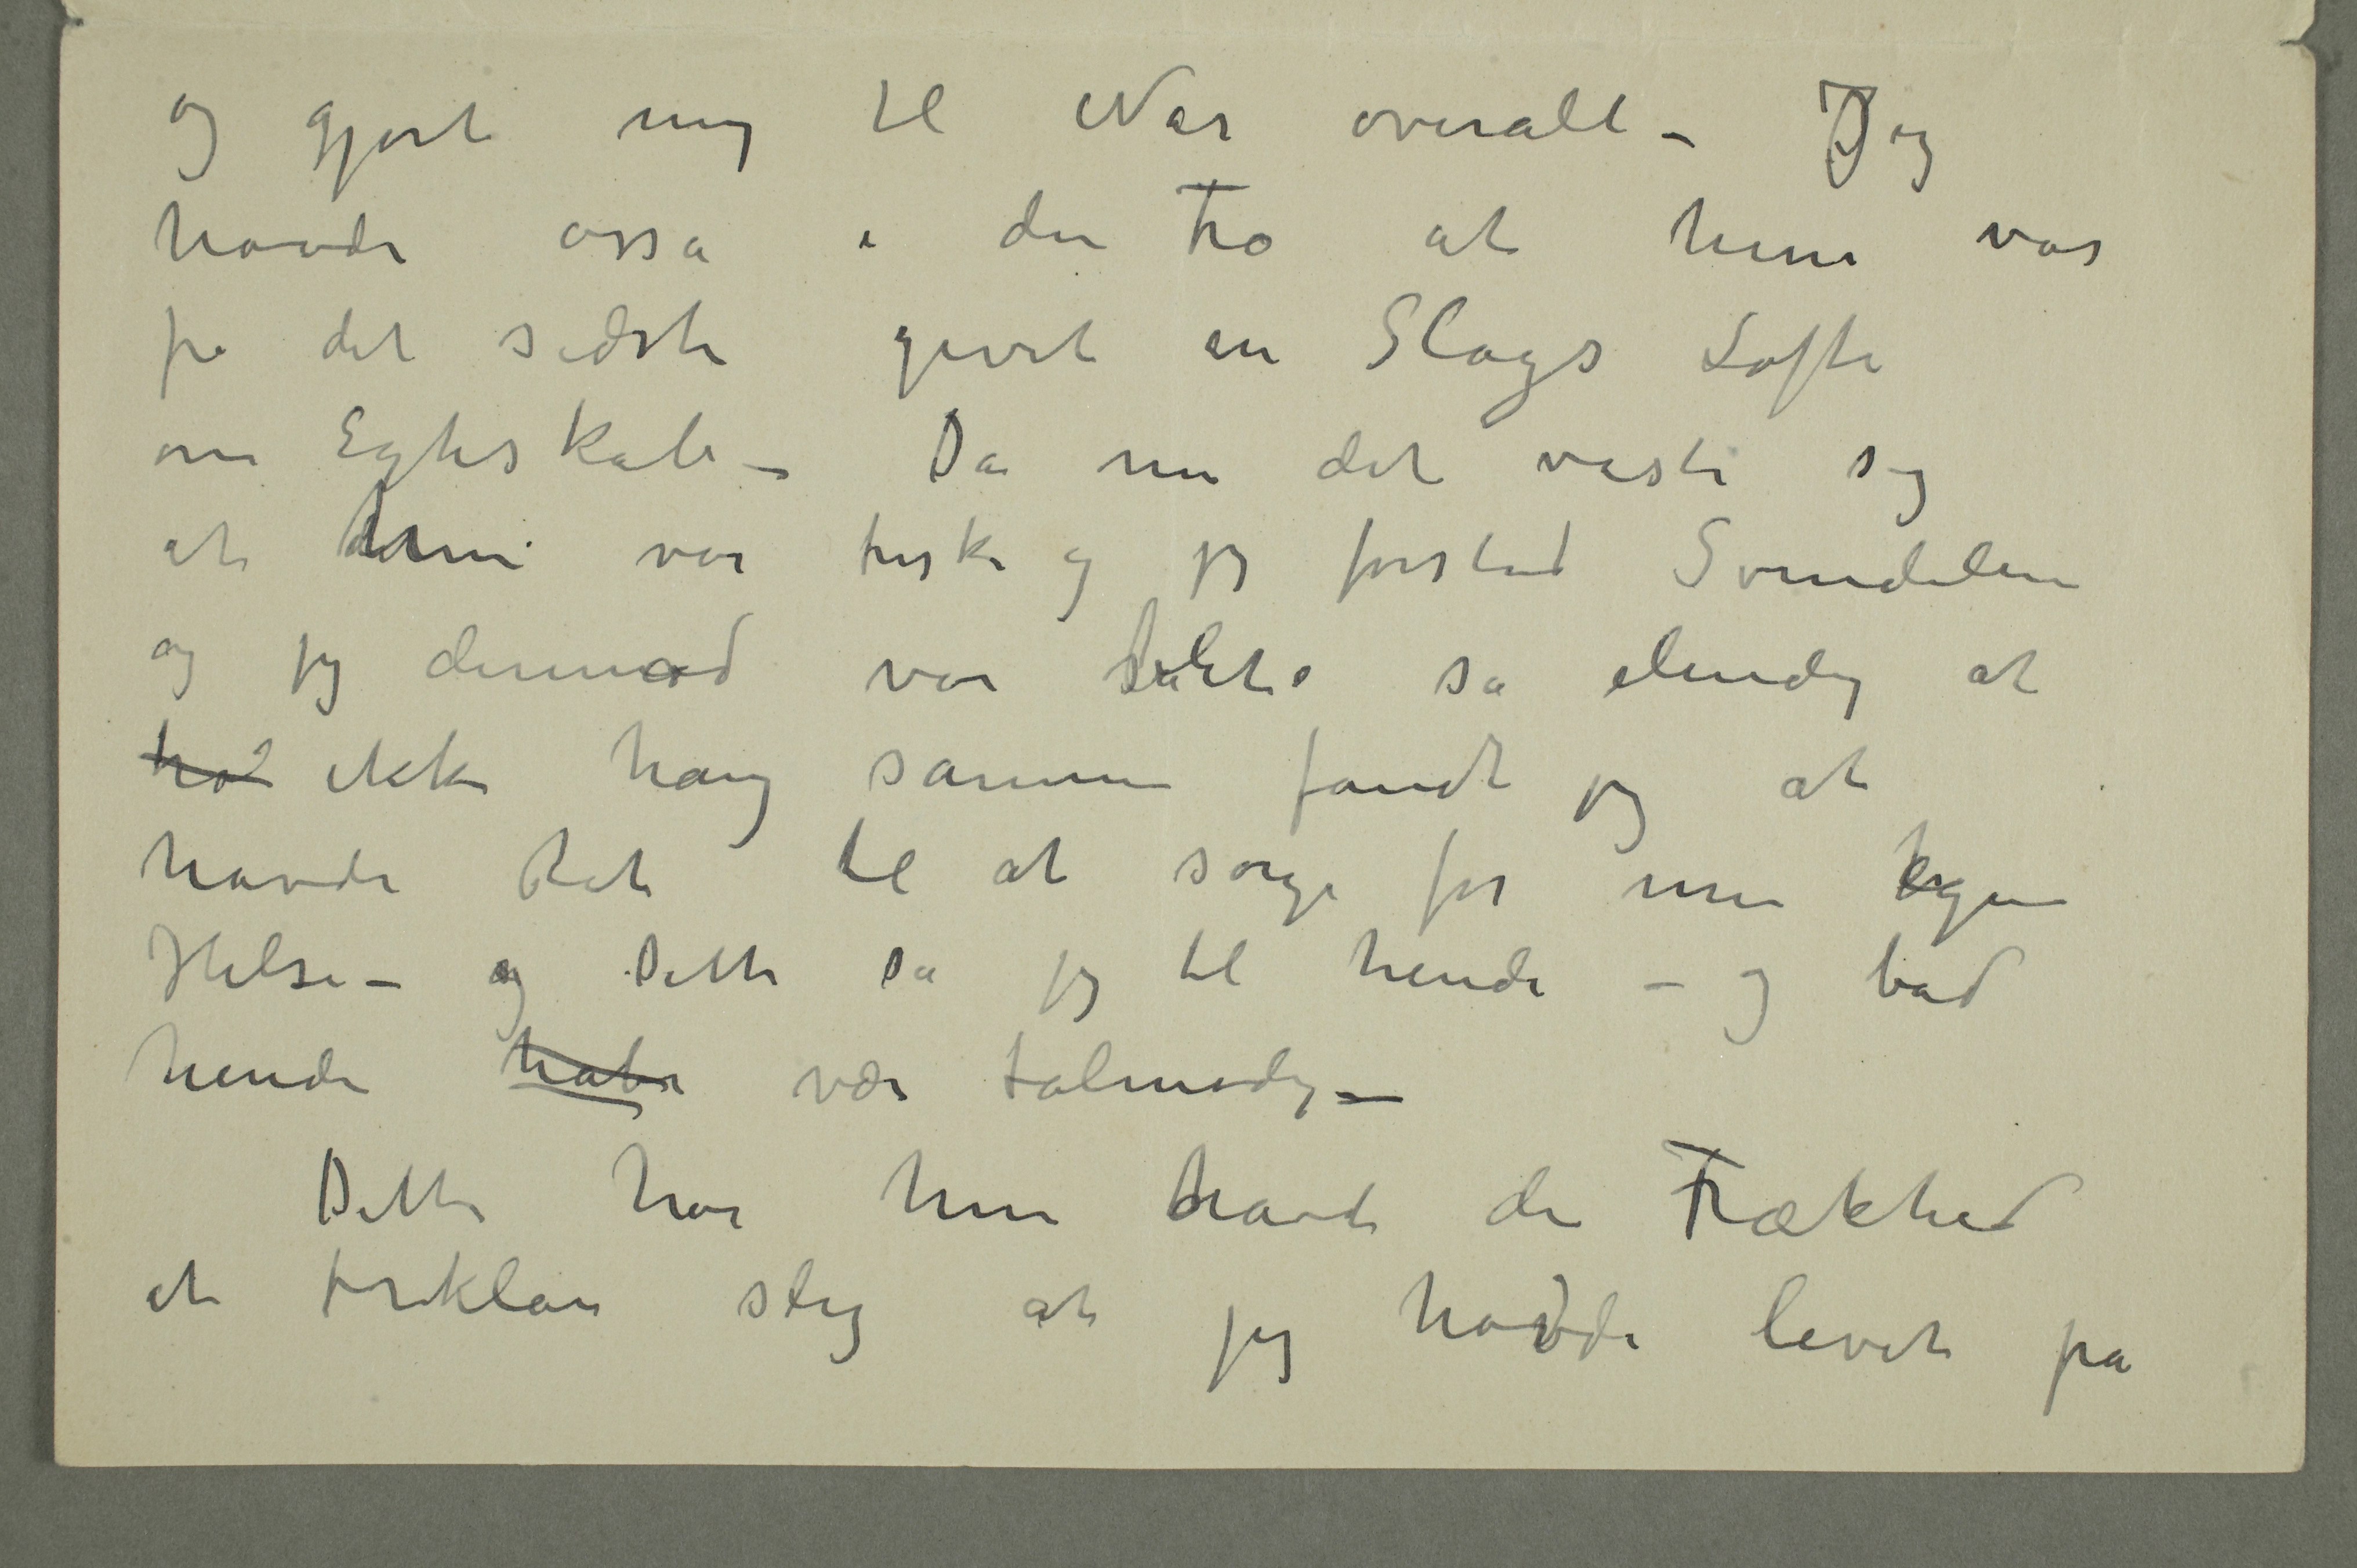 og gjort mig til Nar overalt – Jeg
havde osså i den Tro at hun var
på det sidste givet en Slags Løfte
om Egteskab – Da nu det viste sig
at hun var frisk og jeg forstod Svindelen
og jeg derimod var så elendig at
ikke hang sammen fandt jeg at
havde Ret til at sørge for min egen
Helse – og Dette sa jeg til hende – og bad
hende have vær talmodig –
Dette har hun havt den Frækhed
at forklare slig at jeg havde levet på